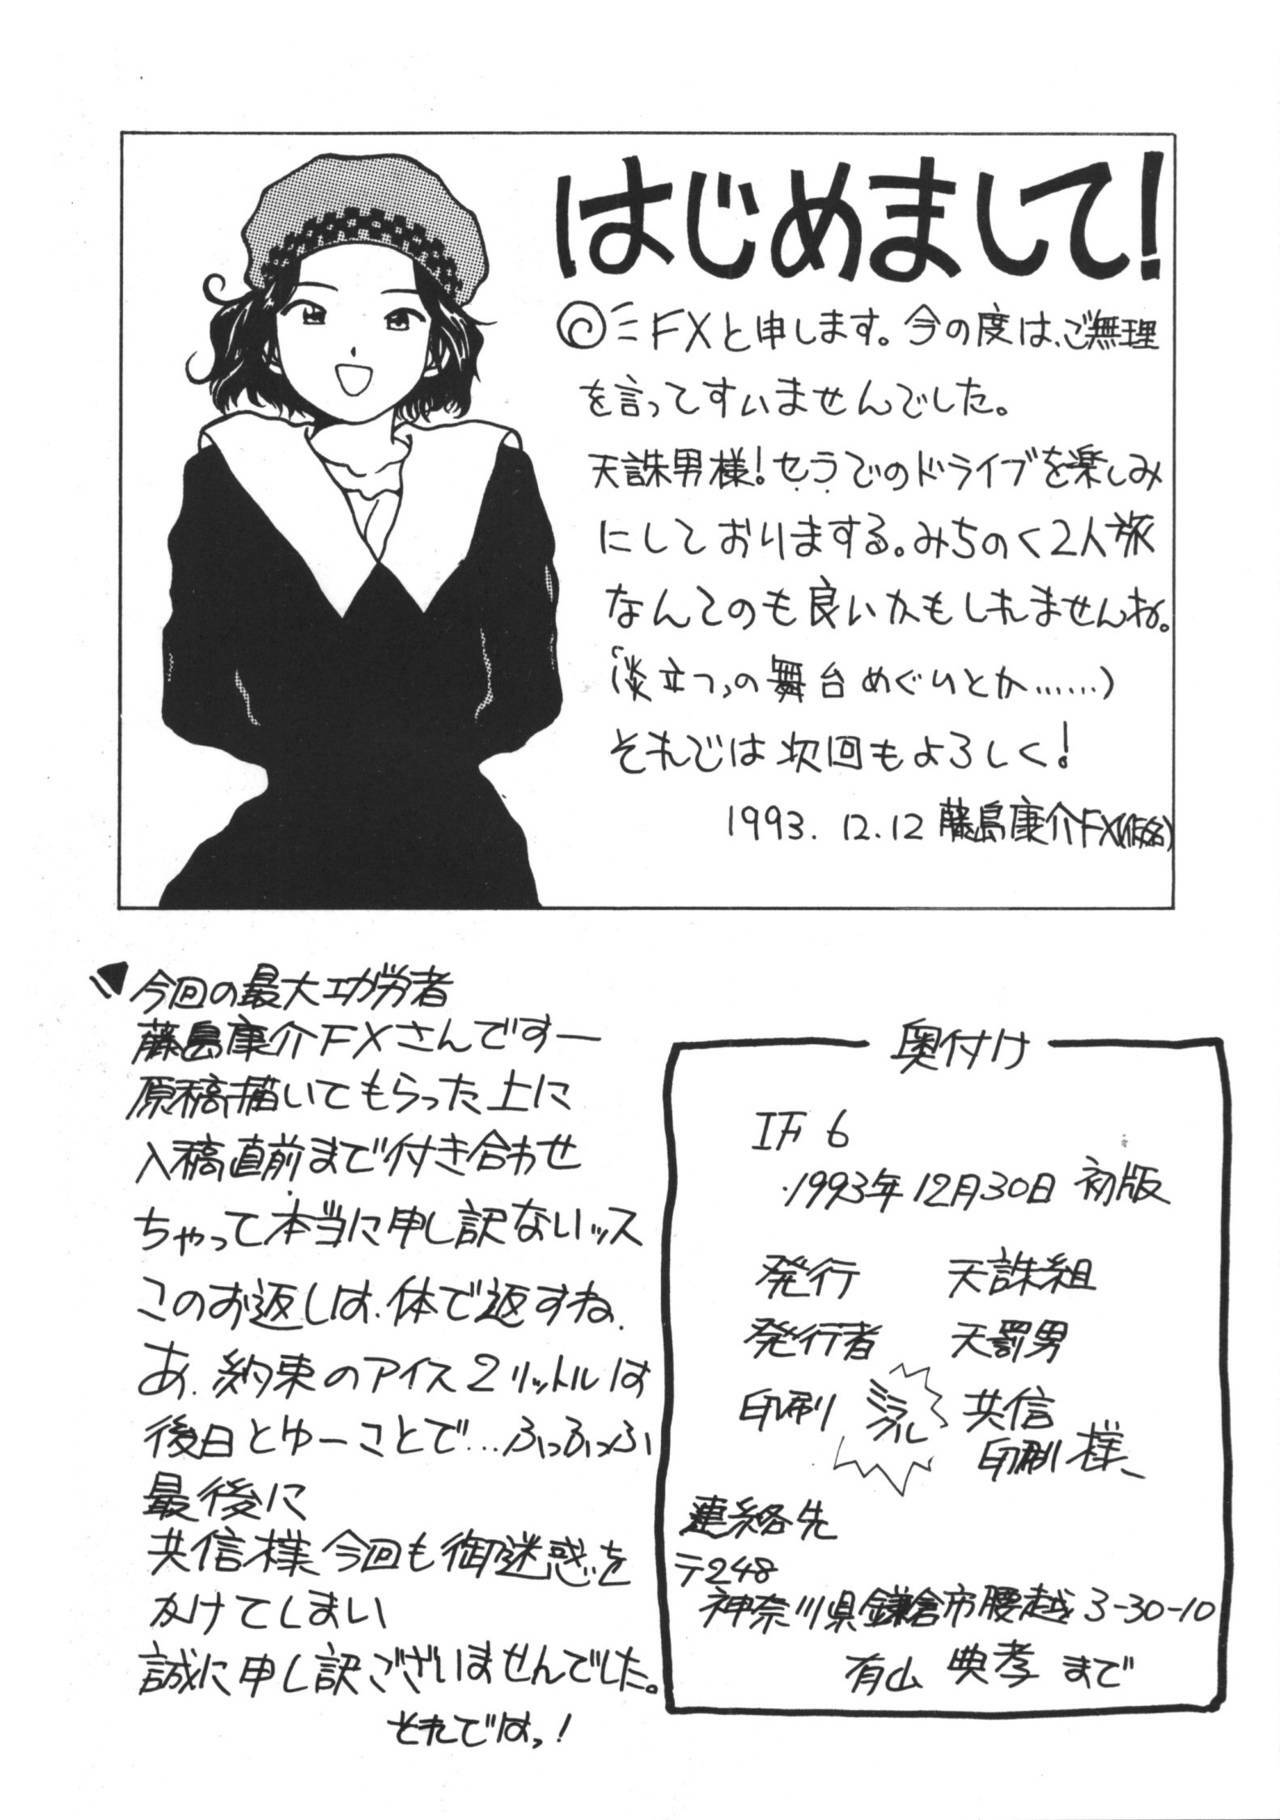 はじめまして！
FXと申します。今の度は、ご無理
を言ってすいませんでした。
天誅男様！セラでのドライブを楽しみ
にしておりまする。みちのく2人旅
なんてのも良いかもしれませんね。
(「炎立つ」の舞台めぐりとか……)
それでは次回もよろしく！
1993.12.12 藤島康介FX(仮名)
今回の最大功労者
藤島康介FXさんですー
原稿描いてもらった上に
入稿直前まで付き合わせ
ちゃって本当に申し訳ないッス
このお返しは、体で返すね、
あ、約束のアイス2リットルは
後日とゆーことで…ふっふっふ
最後に
共信様、今回も御迷惑を
かけてしまい
誠に申し訳ございませんでした。
それではっ！
奥付け
IF 6
1993年12月30日 初版
発行 天誅組
発行者 天罰男
印刷 ミラクル 共信
印刷様、
連絡先
〒248
神奈川県鎌倉市腰越3-30-10
有山 典孝 まで